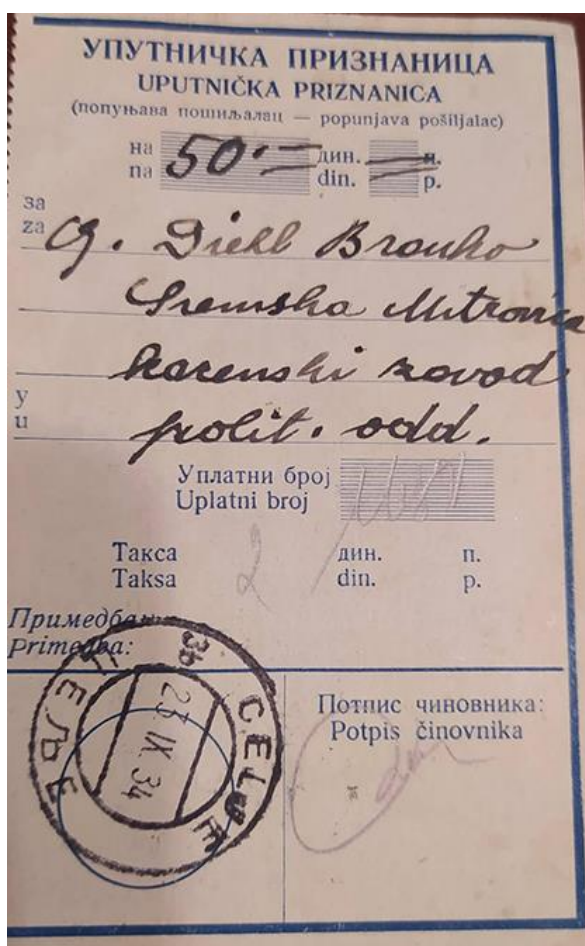 УПУТНИЧКА ПРИЗНАНИЦА
UPUTNIČKA PRIZNANICA
(попуњава пошиљалац — popunjava pošiljalac)
на 50·— дин. — п.
na din. p.
за
za g. Diehl Branko
Sremska Mitrovica
kazenski zavod
у
u polit. odd.
Уплатни број
Uplatni broj
Такса 2 дин. п.
Taksa din. p.
Примедба:
Primedba:
ЦЕЉЕ 3b
CELJE
23 IX. 34
Потпис чиновника:
Potpis činovnika